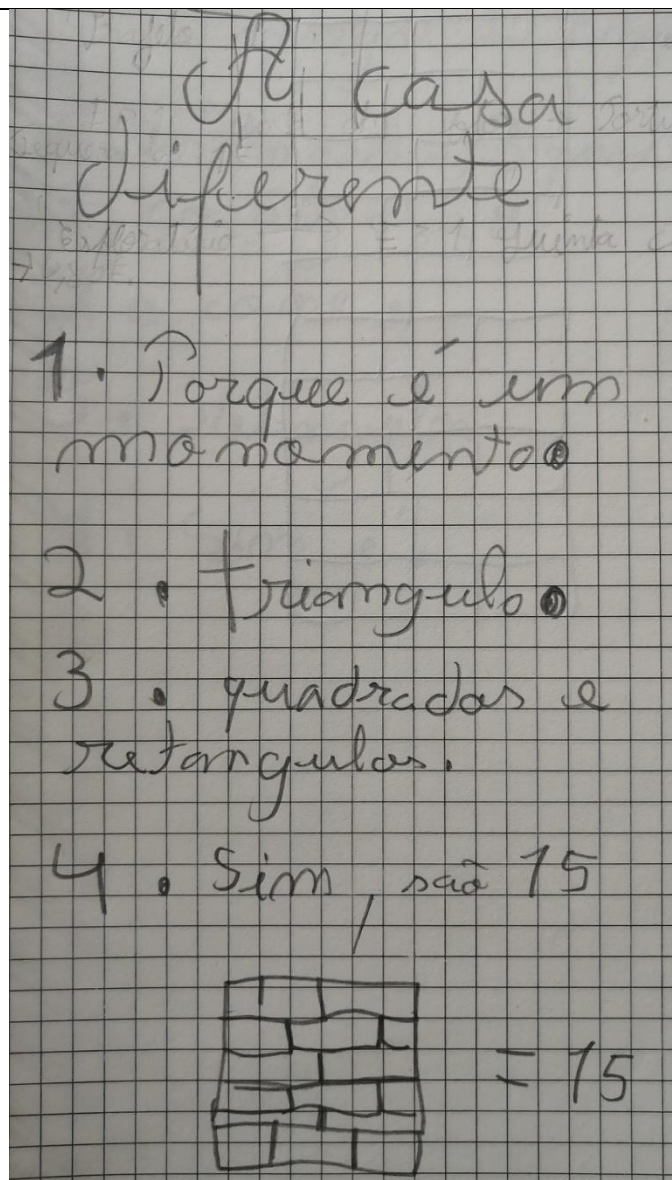 A casa
diferente
1. Porque é um
monomento.
2. triangulo.
3. quadrados e
retangulos.
4. Sim, são 15
= 15